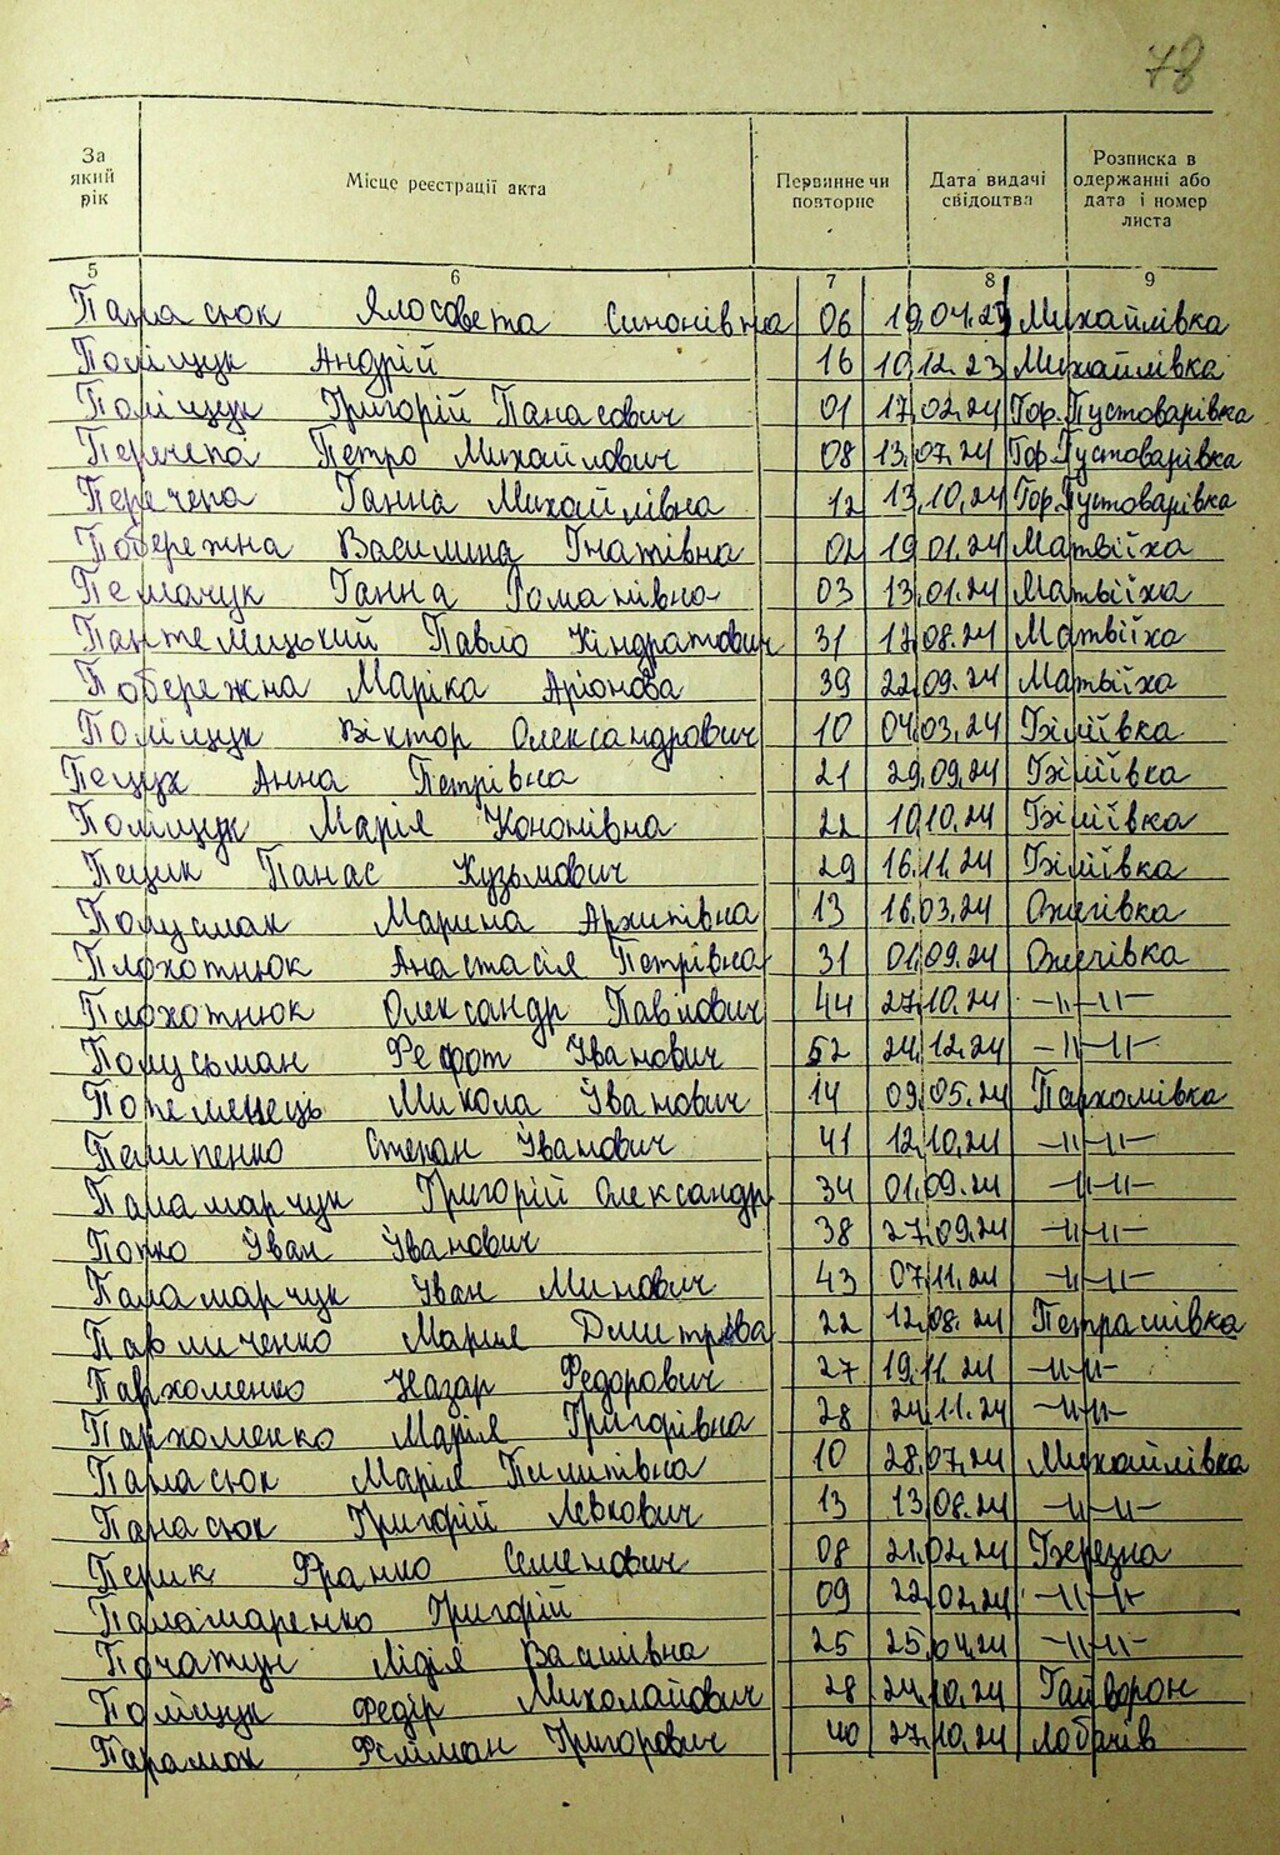 78
За який рік
Місце реєстрації акта
Первинне чи повторне
Дата видачі свідоцтва
Розписка в одержанні або дата і номер листа
5 6 7 8 9
Панасюк Ялосовета Симонівна 06 19.04.24 Михайлівка
Поліщук Андрій 16 10.12.23 Михайлівка
Поліщук Григорій Панасович 01 17.02.24 Гор. Пустоварівка
Перечепа Петро Михайлович 08 13.07.24 Гор. Пустоварівка
Перечепа Ганна Михайлівна 12 13.10.24 Гор. Пустоварівка
Побережна Василина Гнатівна 02 19.01.24 Матвіїха
Ганна Романівна 03 13.01.24 Матвіїха
Павло Кіндратович 31 17.08.24 Матвіїха
Побережна Маріка Аріонова 39 22.09.24 Матвіїха
Поліщук Віктор Олександрович 10 04.03.24 Біліївка
Пещук Анна Петрівна 21 29.09.24 Біліївка
Поліщук Марія Кононівна 22 10.10.24 Біліївка
Пещик Панас Кузьмович 29 16.11.24 Біліївка
Марина Архипівна 13 16.03.24 Ожегівка
Плохотнюк Анастасія Петрівна 31 01.09.24 Ожегівка
Плохотнюк Олександр Павлович 44 27.10.24 -〃-〃-
Федот Іванович 52 24.12.24 -〃-〃-
Микола Іванович 14 09.05.24 Пархомівка
Пилипенко Степан Іванович 41 12.10.24 -〃-〃-
Паламарчук Григорій Олександр 34 01.09.24 -〃-〃-
Попко Іван Іванович 38 27.09.24 -〃-〃-
Паламарчук Іван Минович 43 07.11.24 -〃-〃-
Павличенко Мария Дмитрова 22 12.08.24 Петрашівка
Пархоменко Назар Федорович 27 19.11.24 -〃-〃-
Пархоменко Марія Григорівна 28 24.11.24 -〃-〃-
Панасюк Марія Пилипівна 10 28.07.24 Михайлівка
Панасюк Григорій Левкович 13 13.08.24 -〃-〃-
Перик Франко Семенович 08 21.02.24 Березна
Паламаренко Григорій 09 22.02.24 -〃-〃-
Почапун Лідія Василівна 25 25.04.24 -〃-〃-
Поліщук Федір Миколайович 28 24.10.24 Гайворон
Григорович 40 27.10.24 Лобачів